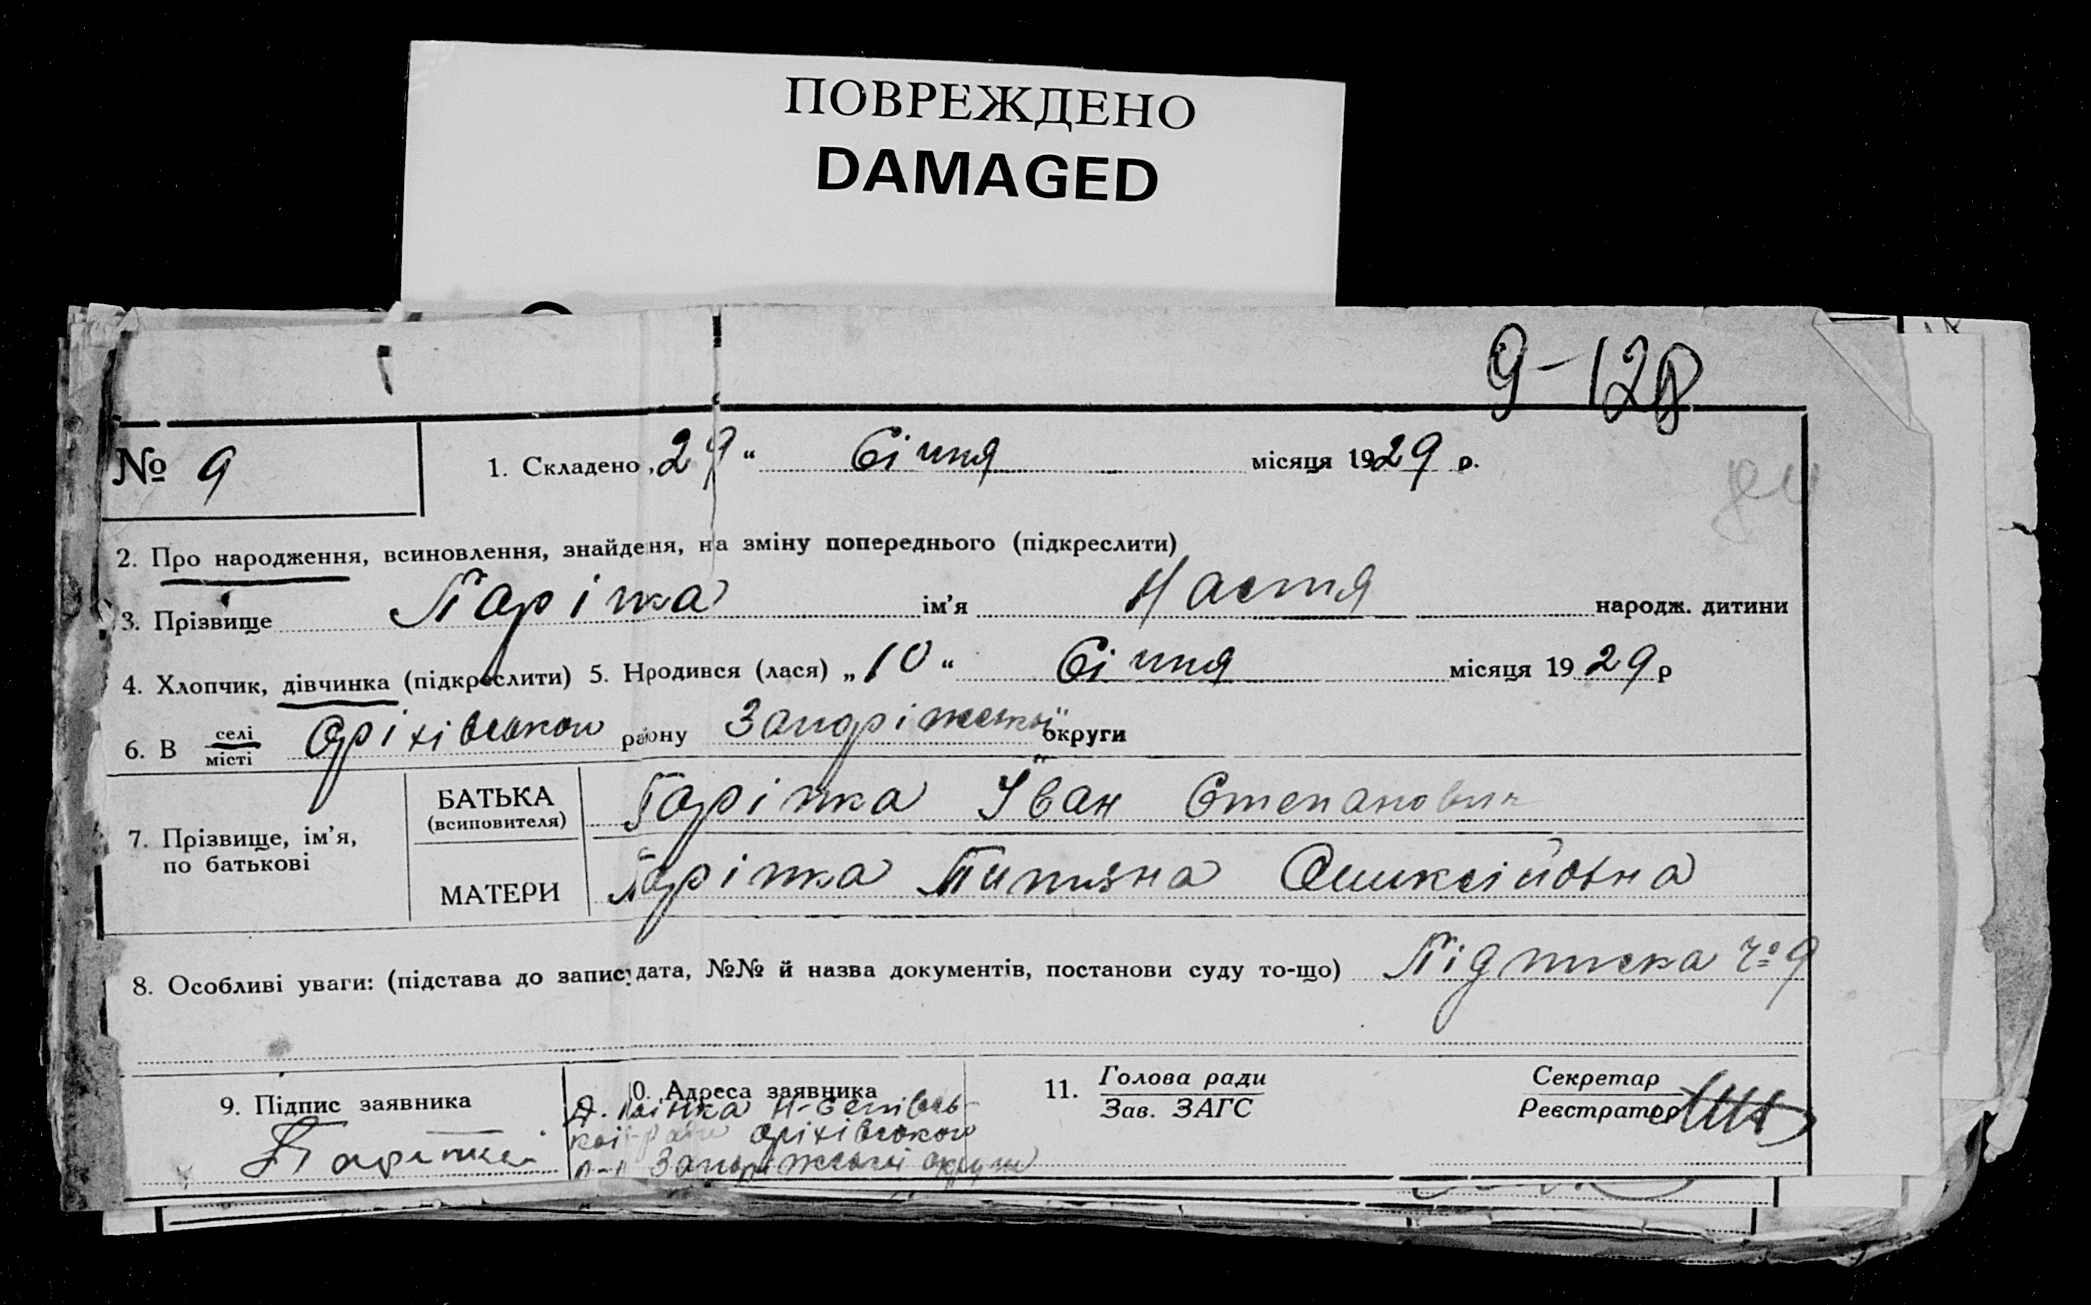 ПОВРЕЖДЕНО
DAMAGED
9-128
№ 9
1. Складено „29“ Січня місяця 1929 р.
2. Про народження, всиновлення, знайдення, на зміну попереднього (підкреслити)
3. Прізвище Паріпка ім'я Настя народж. дитини
4. Хлопчик, дівчинка (підкреслити) 5. Нродився (лася) „10“ Січня місяця 1929 р
6. В селі місті Оріхівського району Запоріжської округи
7. Прізвище, ім'я, по батькові
БАТЬКА (всиновителя) Паріпка Іван Степанович
МАТЕРИ Паріпка Титяна Оликсіївна
8. Особливі уваги: (підстава до запису дата, №№ й назва документів, постанови суду то-що) Підписка № 9
9. Підпис заявника
10. Адреса заявника
оріхівського
Запоріжської округи
11. Голова ради
Зав. ЗАГС
Секретар
Реєстратор